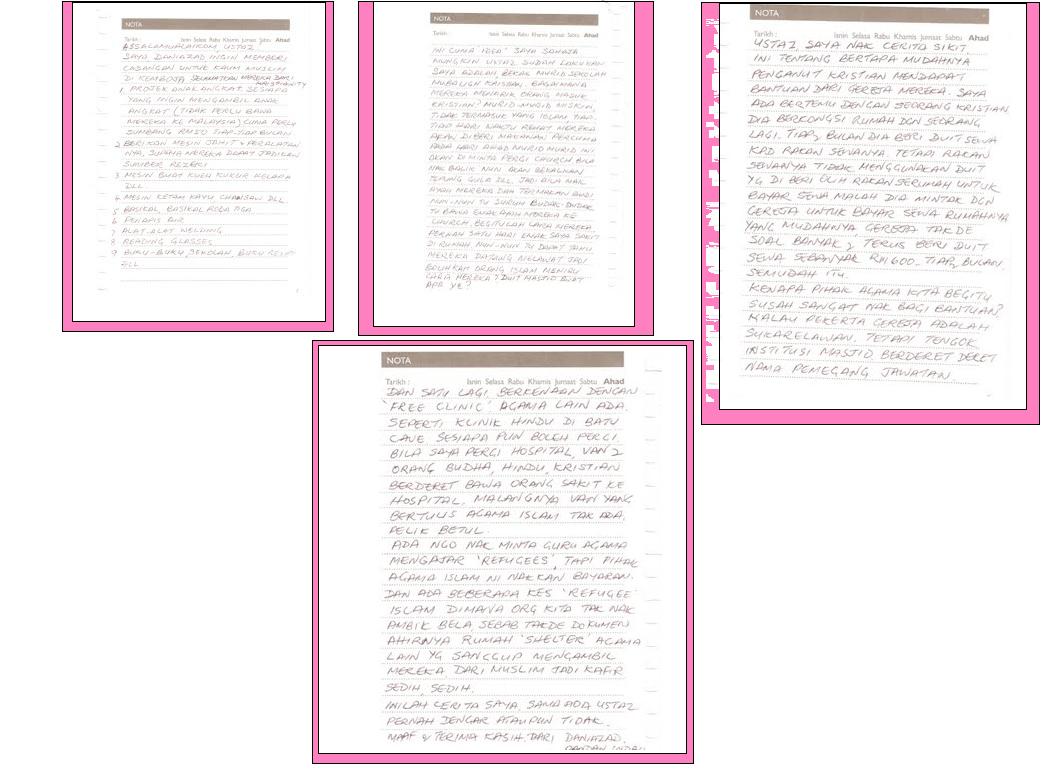 NOTA
Tarikh : Isnin Selasa Rabu Khamis Jumaat Sabtu Ahad
ASSALAMUALAIKOM, USTAZ
SAYA, DANIAZAD INGIN MEMBERI
CADANGAN UNTUK KAUM MUSLIM
DI KEMBOJA SELAMATKAN MEREKA DARI
CHRISTIANITY
1. PROJEK ANAK ANGKAT SESIAPA
YANG INGIN MENGAMBIL ANAK
ANGKAT (TIDAK PERLU BAWA
MEREKA KE MALAYSIA) CUMA PERLU
SUMBANG RM50 TIAP-TIAP BULAN
2 BERIKAN MESIN JAHIT & PERALATAN
NYA, SUPAYA MEREKA DAPAT JADIKAN
SUMBER REZEKI
3 MESIN BUAT KUEH KUKUR KELAPA
DLL
4 MESIN KETAM KAYU CHAINSAW DLL
5 BASIKAL, BASIKAL RODA TIGA
6 PENAPIS AIR
7 ALAT-ALAT WELDING
8 READING GLASSES
9 BUKU-BUKU SEKOLAH, BUKU
DLL
NOTA
Tarikh : Isnin Selasa Rabu Khamis Jumaat Sabtu Ahad
INI CUMA IDEA' SAYA SAHAJA
MUNGKIN USTAZ SUDAH LAKUKAN
SAYA ADALAH, BEKAL MURID SEKOLAH
MUBALIGH KRISTIAN. BAGAIMANA
MEREKA MENARIK ORANG MASUK
KRISTIAN? MURID MURID MISKIN,
TIDAK TERMASUK YANG ISLAM, TIAP-
TIAP HARI WAKTU REHAT MEREKA
AKAN DI BERI MAKANAN PERCUMA
PADA HARI AHAD MURID MURID INI
AKAN DI MINTA PERGI CHURCH BILA
NAK BALIK NUN AKAN BEKALKAN
TEPUNG GULA DLL. JADI BILA MAK
AYAH MEREKA DAH TERMAKAN BUDI
NUN-NUN TU SURUH BUDAK-BUDAK
TU BAWA EMAK AYAH MEREKA KE
CHURCH. BEGITULAH CARA MEREKA.
PERNAH SATU HARI EMAK SAYA SAKIT
DI RUMAH. NUN-NUN TU DAPAT TAHU
MEREKA DATANG MELAWAT JADI
BOLIHKAH ORANG ISLAM MENIRU
CARA MEREKA? DUIT MASJID BUAT
APA YE?
NOTA
Tarikh : Isnin Selasa Rabu Khamis Jumaat Sabtu Ahad
USTAZ, SAYA NAK CERITA SIKIT,
INI TENTANG BERTAPA MUDAHNYA
PENGANUT KRISTIAN MENDAPAT
BANTUAN DARI GEREJA MEREKA. SAYA
ADA BERTEMU DENGAN SEORANG KRISTIAN
DIA BERKONGSI RUMAH DGN SEORANG
LAGI. TIAP2 BULAN DIA BERI DUIT SEWA
KPD RAKAN SEWANYA. TETAPI RAKAN
SEWANYA TIDAK MENGGUNAKAN DUIT
YG DI BERI OLIH RAKAN SERUMAH UNTUK
BAYAR SEWA MALAH DIA MINTAK DGN
GEREJA UNTUK BAYAR SEWA RUMAHNYA
YANG MUDAHNYA GEREJA TAK DE
SOAL BANYAK2 TERUS BERI DUIT
SEWA SEBANYAK RM600. TIAP2 BULAN
SEMUDAH ITU.
KENAPA PIHAK AGAMA KITA BEGITU
SUSAH SANGAT NAK BAGI BANTUAN?
MALAU PEKERJA GEREJA ADALAH
SUKARELAWAN. TETAPI TENGOK
INSTITUSI MASJID BERDERET DERET
NAMA PEMEGANG JAWATAN
NOTA
Tarikh : Isnin Selasa Rabu Khamis Jumaat Sabtu Ahad
DAN SATU LAGI BERKENAAN DENGAN
'FREE CLINIC' AGAMA LAIN ADA.
SEPERTI KLINIK HINDU DI BATU
CAVE SESIAPA PUN BOLEH PERGI.
BILA SAYA PERGI HOSPITAL, VAN2
ORANG BUDHA, HINDU, KRISTIAN
BERDERET BAWA ORANG SAKIT KE
HOSPITAL. MALANGNYA VAN YANG
BERTULIS AGAMA ISLAM TAK ADA.
PELIK BETUL.
ADA NGO NAK MINTA GURU AGAMA
MENGAJAR 'REFUGEES', TAPI PIHAK
AGAMA ISLAM NI NAKKAN BAYARAN.
DAN ADA BEBERAPA KES 'REFUGEE'
ISLAM DIMANA ORG KITA TAK NAK
AMBIK BELA SEBAB TAKDE DOKUMEN
AHIRNYA RUMAH 'SHELTER' AGAMA
LAIN YG SANGGUP MENGAMBIL
MEREKA DARI MUSLIM JADI KAFIR
SEDIH, SEDIH.
INILAH CERITA SAYA, SAMA ADA USTAZ
PERNAH DENGAR ATAUPUN TIDAK.
MAAF & TERIMA KASIH. DARI DANIAZAD.
PANDAN INDAH